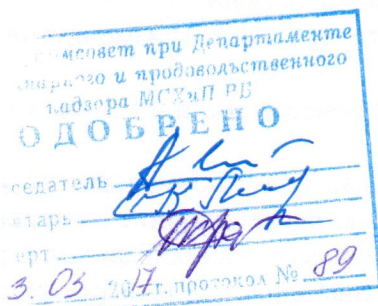 совет при Департаменте
и продовольственного
надзора МСХиП РБ
ОДОБРЕНО
седатель
тарь
ерт
3. 03 2017г. протокол № 89